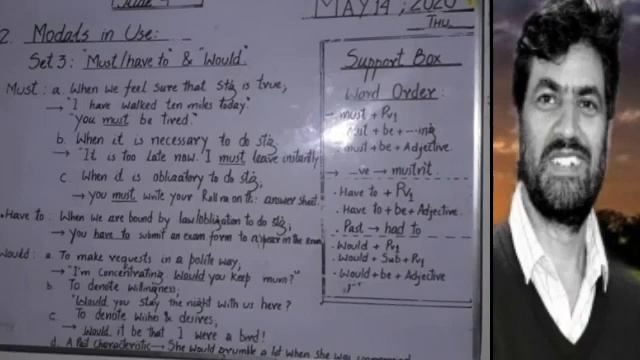 MAY 14, 2020
THU.
2. Modals in Use:
Set 3: "Must/have to" & "Would"
Must: a. When we feel sure that stg is true,
→ "I have walked ten miles today."
"You must be tired."
b. When it is necessary to do stg,
→ "It is too late now. I must leave instantly
c. When it is obligatory to do stg,
→ You must write your Roll no on th: answer sheet.
• Have to: When we are bound by law/obligation to do stg,
→ You have to submit an exam form to appear in the exam
Would: a. To make requests in a polite way,
→ "I'm concentrating. Would you keep mum?"
b. To denote willingness,
"Would you stay the night with us here?
c. To denote wishes & desires,
→ Would it be that I were a bird!
d. A Past characteristic → She would grumble a lot when she was
Support Box
Word Order:
→ must + Pv1
must + be + -ing
must + be + Adjective
→ -ve → mustn't
• Have to + Pv1
• Have to + be + Adjective
• Past → had to
• Would + Pv1
• Would + Sub + Pv1
• Would + be + Adjective